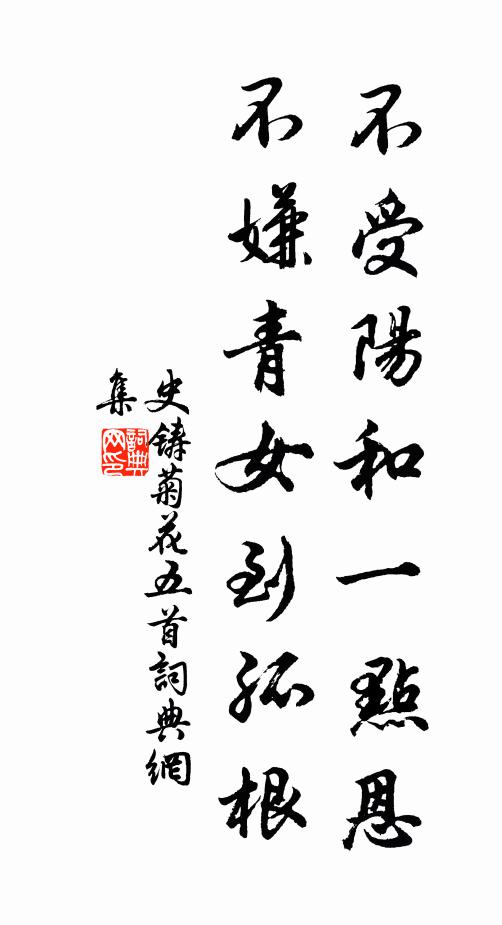 不受陽和一點恩
不嫌青女到孤根
史鑄菊花五首詞典網
集
詞典
网印